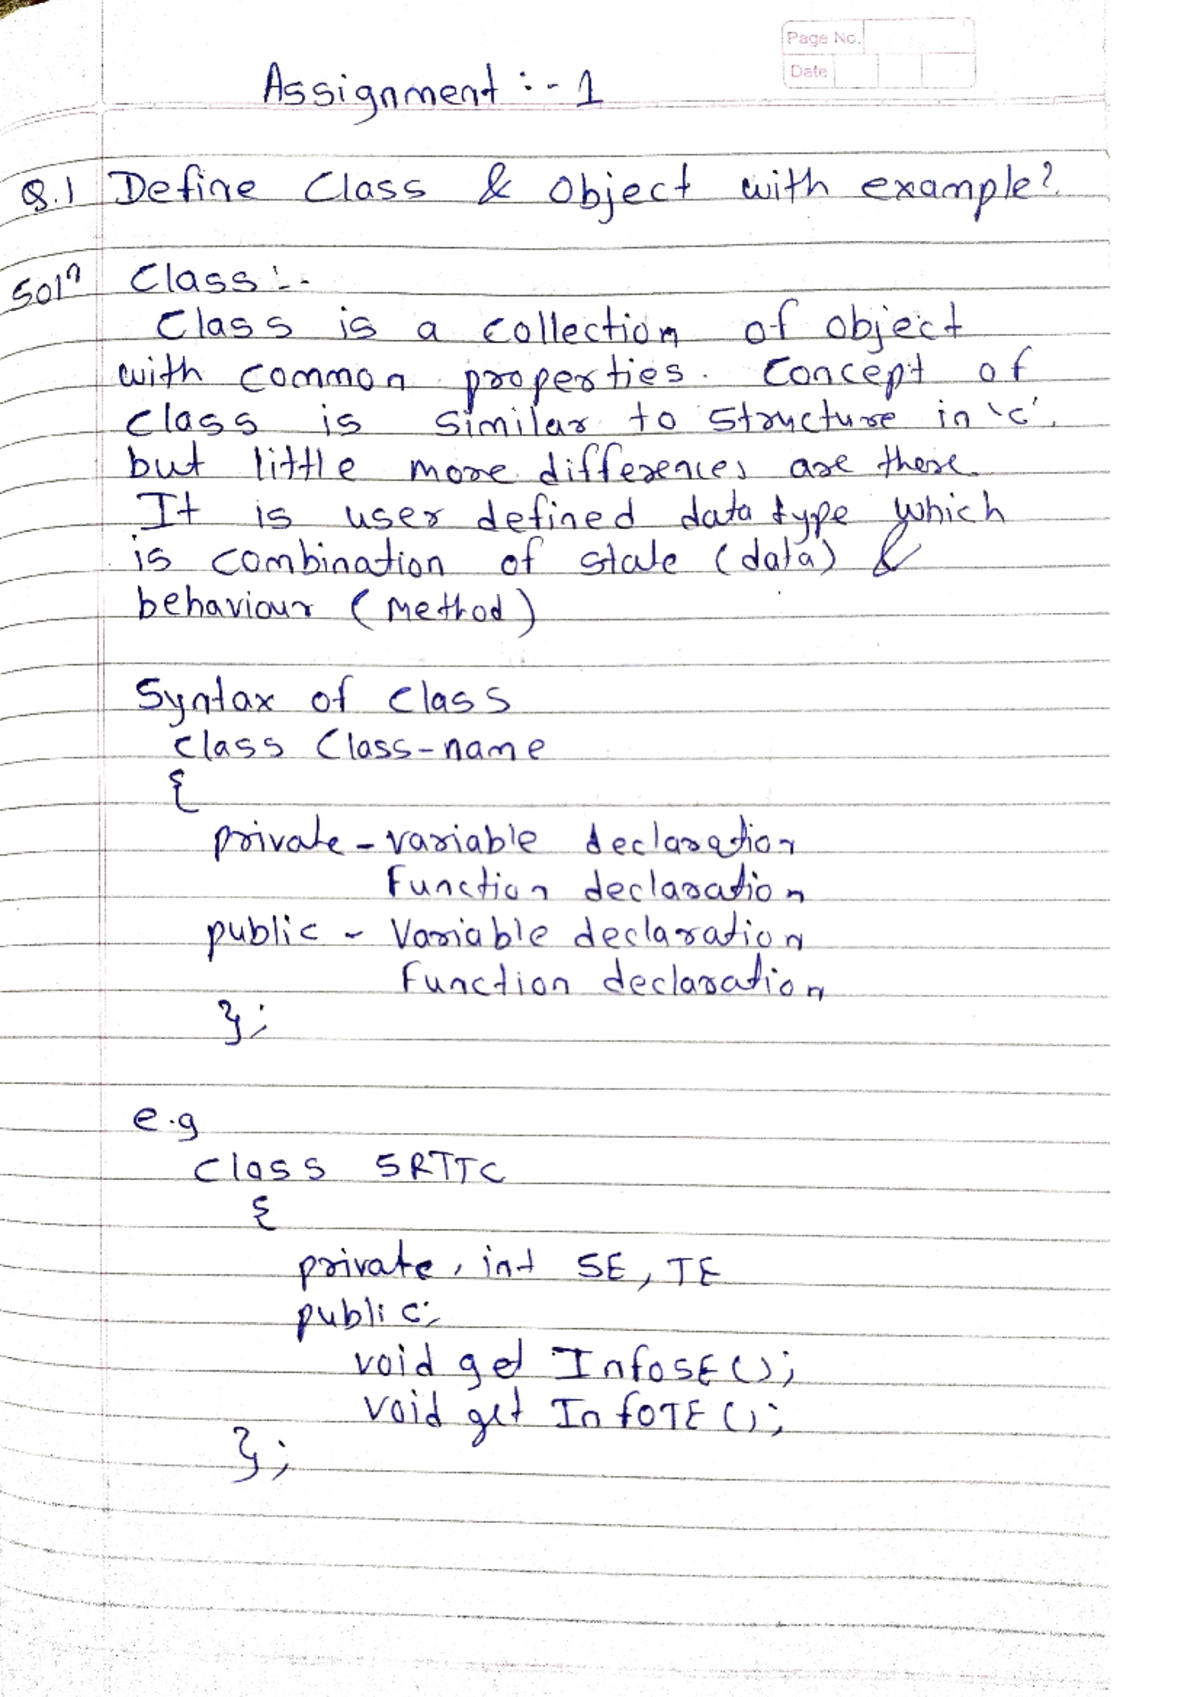 Page No.
Date
Assignment :- 1
Q.1 Define Class & Object with example?
Solⁿ Class :-
Class is a collection of object
with common properties. Concept of
class is similar to structure in 'c'.
but little more differences are there.
It is user defined data type which
is combination of state (data) &
behaviour (Method)
Syntax of class
class Class-name
{
private - variable declaration
Function declaration
public - Variable declaration
Function declaration
};
e.g
Class SRTTC
{
private, int SE, TE
public:
void get InfoSE();
void get InfoTE();
};